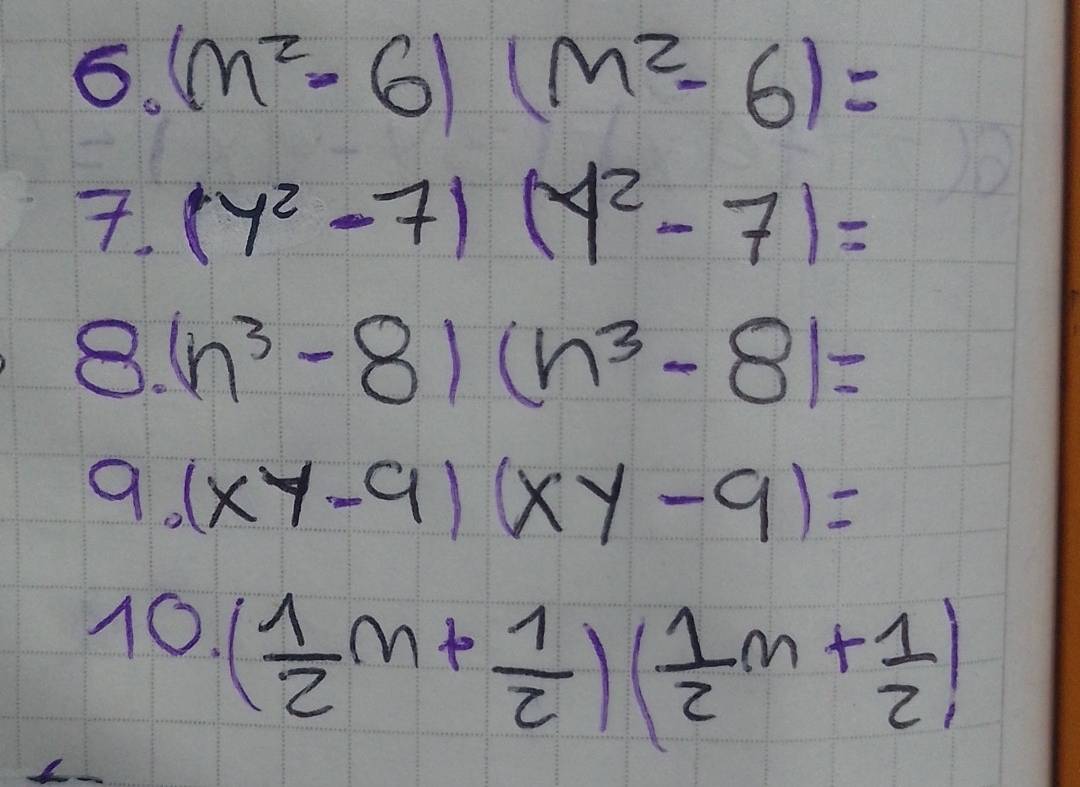 6. (m² - 6) (m² - 6) =
7. (y² - 7) (y² - 7) =
8. (n³ - 8) (n³ - 8) =
9. (xy - 9) (xy - 9) =
10. (1/2 m + 1/2) (1/2 m + 1/2)